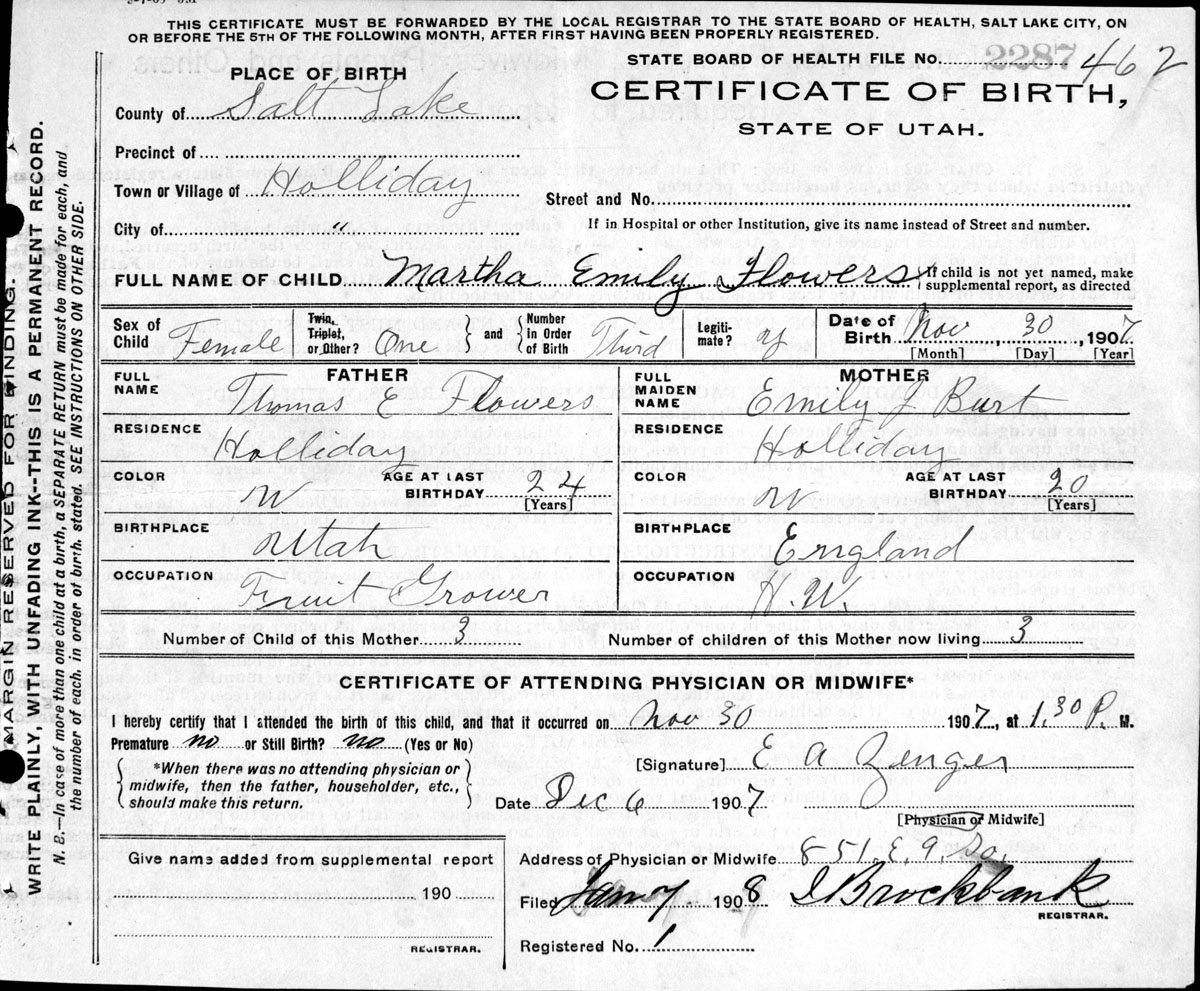 THIS CERTIFICATE MUST BE FORWARDED BY THE LOCAL REGISTRAR TO THE STATE BOARD OF HEALTH, SALT LAKE CITY, ON
OR BEFORE THE 5TH OF THE FOLLOWING MONTH, AFTER FIRST HAVING BEEN PROPERLY REGISTERED.
STATE BOARD OF HEALTH FILE No. 2287 462
PLACE OF BIRTH
CERTIFICATE OF BIRTH,
County of Salt Lake
STATE OF UTAH.
Precinct of
Town or Village of Holliday
Street and No.
City of "
If in Hospital or other Institution, give its name instead of Street and number.
FULL NAME OF CHILD Martha Emily Flowers { If child is not yet named, make
supplemental report, as directed
Sex of Child Female
Twin, Triplet, or Other? One } and { Number in Order of Birth Third
Legiti-mate? y
Date of Birth Nov, 30, 1907
[Month] [Day] [Year]
FATHER
FULL NAME Thomas E Flowers
RESIDENCE Holliday
COLOR W AGE AT LAST BIRTHDAY 24 [Years]
BIRTHPLACE Utah
OCCUPATION Fruit Grower
MOTHER
FULL MAIDEN NAME Emily J Burt
RESIDENCE Holliday
COLOR W AGE AT LAST BIRTHDAY 20 [Years]
BIRTHPLACE England
OCCUPATION H.W.
Number of Child of this Mother 3 Number of children of this Mother now living 3
CERTIFICATE OF ATTENDING PHYSICIAN OR MIDWIFE*
I hereby certify that I attended the birth of this child, and that it occurred on Nov 30 1907, at 1.30 P. M.
Premature no or Still Birth? no (Yes or No)
{ *When there was no attending physician or
midwife, then the father, householder, etc.,
should make this return. }
[Signature] E A Zenger
Date Dec 6 1907
[Physician or Midwife]
Give name added from supplemental report
190
REGISTRAR.
Address of Physician or Midwife 851. E. 9. So.
Filed Jan 7 1908 I Brockbank
REGISTRAR.
Registered No. 1
MARGIN RESERVED FOR BINDING.
WRITE PLAINLY, WITH UNFADING INK--THIS IS A PERMANENT RECORD.
N. B.—In case of more than one child at a birth, a SEPARATE RETURN must be made for each, and
the number of each, in order of birth, stated. SEE INSTRUCTIONS ON OTHER SIDE.